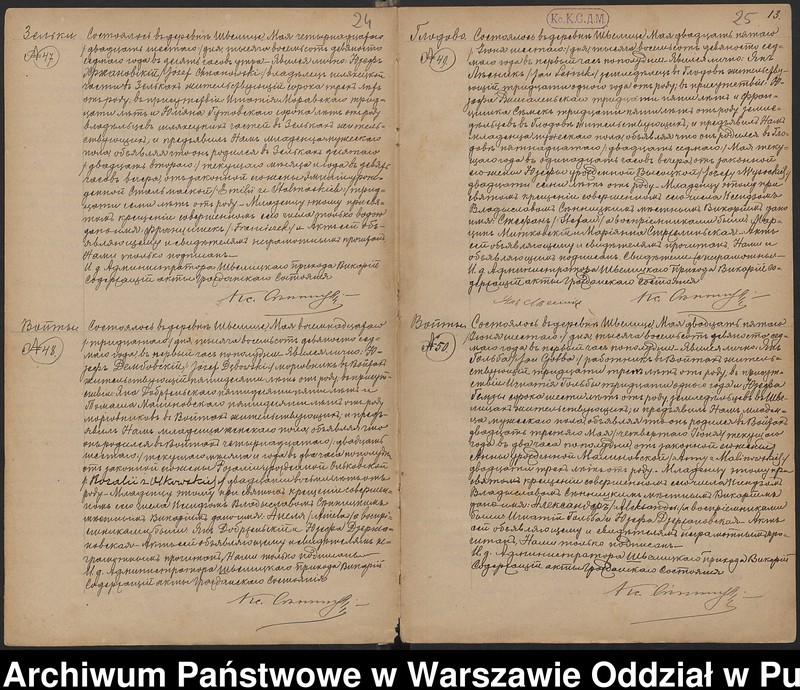 24
Зельки
№47
Состоялось въ деревнѣ Швелице Мая четырнадцатаго
/двадцать шестого/ дня, тысяча восемьсотъ девяносто
седьмаго года въ десять часовъ утра. Явился лично Юзефъ
Хржановскій /Josef Chrzanowski/ владѣлецъ шляхецкой
части въ Зелькахъ жительствующій сорока трехъ лѣтъ
отъ роду, въ присутствіи Игнатія Моравскаго
цати лѣтъ и Юліяна Гутовскаго сорока лѣтъ отъ роду
владѣльцевъ шляхецкихъ частей въ Зелькахъ житель-
ствующихъ, и предъявилъ Намъ младенца мужескаго
пола, объявляя что онъ родился въ Зелькахъ десятаго
/двадцать второго/ текущаго мѣсяца и года въ девять
часовъ вечера, отъ законной его жены Эмиліи урож-
денной /Emilii ze/ трид-
цати семи лѣтъ отъ роду. Младенцу этому при свя-
томъ крещеніи совершенномъ его числа только водою
дано имя Францишекъ /Franciszek/ Актъ сей объ-
являющему и свидѣтелямъ неграмотнымъ прочитанъ
Нами только подписанъ.
И. д. Администратора Швелицкаго прихода Викарій
Содержащій акты Гражданскаго Состоянія
Кс.
Войты
№48
Состоялось въ деревнѣ Швелице Мая восемнадцатаго
/тридцатаго/ дня, тысяча восемьсотъ девяносто седь-
маго года, въ первый часъ пополудни. Явился лично Ю-
зефъ Дембовскій /Josef Dębowski/ морговникъ въ Войтахъ
жительствующій пятидесяти лѣтъ отъ роду, въ присут-
ствіи Яна пятидесяти пяти лѣтъ и
Томаша Малиновскаго пятидесяти лѣтъ отъ роду
морговниковъ въ Войтахъ жительствующихъ, и предъ-
явилъ Намъ младенца женскаго пола, объявляя что
онъ родился въ Войтахъ четырнадцатаго /двадцать
шестаго/ текущаго мѣсяца и года въ два часа пополудни
отъ законной его жены Розаліи урожденной Олковской
/Rozalii z Olkowskich/ лѣтъ отъ
роду. Младенцу этому при святомъ крещеніи совершен-
номъ его числа Ксендзомъ Владиславомъ
мѣстнымъ Викаріемъ дано имя Анеля /Aniela/, а воспрі-
емниками были Янъ и Юзефа Дзержа-
новская. Актъ сей объявляющему и свидѣтелямъ не-
грамотнымъ прочитанъ, Нами только подписанъ.
И. д. Администратора Швелицкаго прихода Викарій
Содержащій акты Гражданскаго Состоянія
Кс.
Кс. К. С. Д. М.
25
13.
Глодово
№49
Состоялось въ деревнѣ Швелице Мая двадцать пятаго
/Іюня шестаго/ дня, тысяча восемьсотъ девяносто седь-
маго года въ первый часъ пополудни. Явился лично Янъ
земледѣлецъ въ Глодовѣ жительству-
ющій тридцати одного года отъ роду, въ присутствіи Ю-
зефа тридцати пяти лѣтъ и Фран-
цишка тридцати пяти лѣтъ отъ роду земле-
дѣльцевъ въ Глодовѣ жительствующихъ, и предъявилъ Намъ
младенца мужескаго пола, объявляя что онъ родился въ Гло-
довѣ пятнадцатаго /двадцать седьмаго/ Мая теку-
щаго года въ одинадцать часовъ вечера, отъ законной
его жены Юзефы урожденной Высоцкой /Josefy Wysockiej/
двадцати семи лѣтъ отъ роду. Младенцу этому при
святомъ крещеніи совершенномъ его числа Ксендзомъ
Владиславомъ мѣстнымъ Викаріемъ дано
имя Стефанъ /Stefan/ а воспріемниками были Мар-
цинъ и Маріянна Актъ
сей объявляющему и свидѣтелямъ прочитанъ, Нами и
объявляющимъ подписанъ. Свидѣтели неграмотны.
И. д. Администратора Швелицкаго прихода Викарій Со-
держащій акты Гражданскаго Состоянія
Кс.
Войты
№50
Состоялось въ деревнѣ Швелице Мая двадцать пятаго
/Іюня шестаго/ дня, тысяча восемьсотъ девяносто седь-
маго года, въ первый часъ пополудни. Явился лично Янъ
работникъ въ Войтахъ житель-
ствующій тридцати трехъ лѣтъ отъ роду, въ присут-
ствіи Игнатія тридцати одного года и Юзефа
сорока шести лѣтъ отъ роду, земледѣльцевъ въ Шве-
лицахъ жительствующихъ, и предъявилъ Намъ младен-
ца мужескаго пола, объявляя что онъ родился въ Войтахъ
двадцать третьяго Мая /четвертаго Іюня/ текущаго
года въ два часа пополудни, отъ законной его жены
Анны урожденной Малиновской /Anny z Malinowskich/
двадцати трехъ лѣтъ отъ роду. Младенцу этому при
святомъ крещеніи совершенномъ его числа Ксендзомъ
Владиславомъ мѣстнымъ Викаріемъ
дано имя Александръ /Aleksander/ а воспріемниками
были Игнатій и Юзефа Дзержановская. Актъ
сей объявляющему и свидѣтелямъ неграмотнымъ про-
читанъ, Нами только подписанъ.
И. д. Администратора Швелицкаго прихода Викарій
Содержащій акты Гражданскаго Состоянія
Кс.
Archiwum Państwowe w Warszawie Oddział w Pu